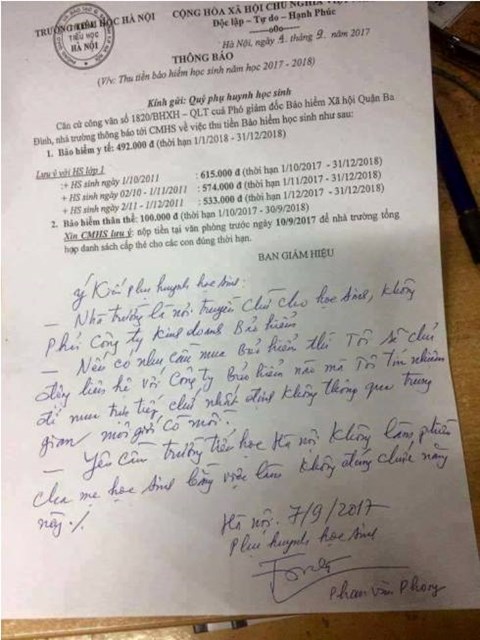 TRƯỜNG TIỂU HỌC HÀ NỘI CỘNG HÒA XÃ HỘI CHỦ NGHĨA
TIỂU HỌC
HÀ NỘI
Độc lập - Tự do - Hạnh Phúc
Hà Nội, ngày 4 tháng 9 năm 2017
THÔNG BÁO
(V/v: Thu tiền bảo hiểm học sinh năm học 2017 - 2018)
Kính gửi: Quý phụ huynh học sinh
Căn cứ công văn số 1820/BHXH – QLT của Phó giám đốc Bảo hiểm Xã hội Quận Ba
Đình, nhà trường thông báo tới CMHS về việc thu tiền Bảo hiểm học sinh như sau:
1. Bảo hiểm y tế: 492.000 đ (thời hạn 1/1/2018 - 31/12/2018)
Lưu ý với HS lớp 1
:+ HS sinh ngày 1/10/2011 : 615.000 đ (thời hạn 1/10/2017 - 31/12/2018)
+ HS sinh ngày 02/10 - 1/11/2011 : 574.000 đ (thời hạn 1/11/2017 - 31/12/2018)
+ HS sinh ngày 2/11 - 1/12/2011 : 533.000 đ (thời hạn 1/12/2017 - 31/12/2018)
2. Bảo hiểm thân thể: 100.000 đ (thời hạn 1/10/2017 - 30/9/2018)
Xin CMHS lưu ý: nộp tiền tại văn phòng trước ngày 10/09/2017 để nhà trường tổng
hợp danh sách cấp thẻ cho các con đúng thời hạn.
BAN GIÁM HIỆU
Ý Kiến phụ huynh học sinh:
– Nhà trường là nơi truyền chữ cho học sinh, không
Phải Công ty Kinh doanh Bảo hiểm.
– Nếu có nhu cầu mua Bảo hiểm thì Tôi sẽ chủ
động liên hệ với Công ty Bảo hiểm nào mà Tôi Tín nhiệm
để mua trực tiếp, chứ nhất định không thông qua trung
gian, môi giới cò mồi.
– Yêu cầu trường tiểu học Hà Nội không làm phiền
cha mẹ học sinh bằng việc làm không đúng chức năng
này./.
Hà nội. 7/9/2017
Phụ huynh học sinh
Phan Văn Phong